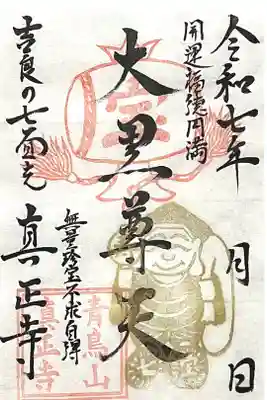 令和七年 月 日
開運福徳円満
大黒尊天
無量珍宝不求自得
吉良の七面さん
真正寺
青鳥山
真正寺